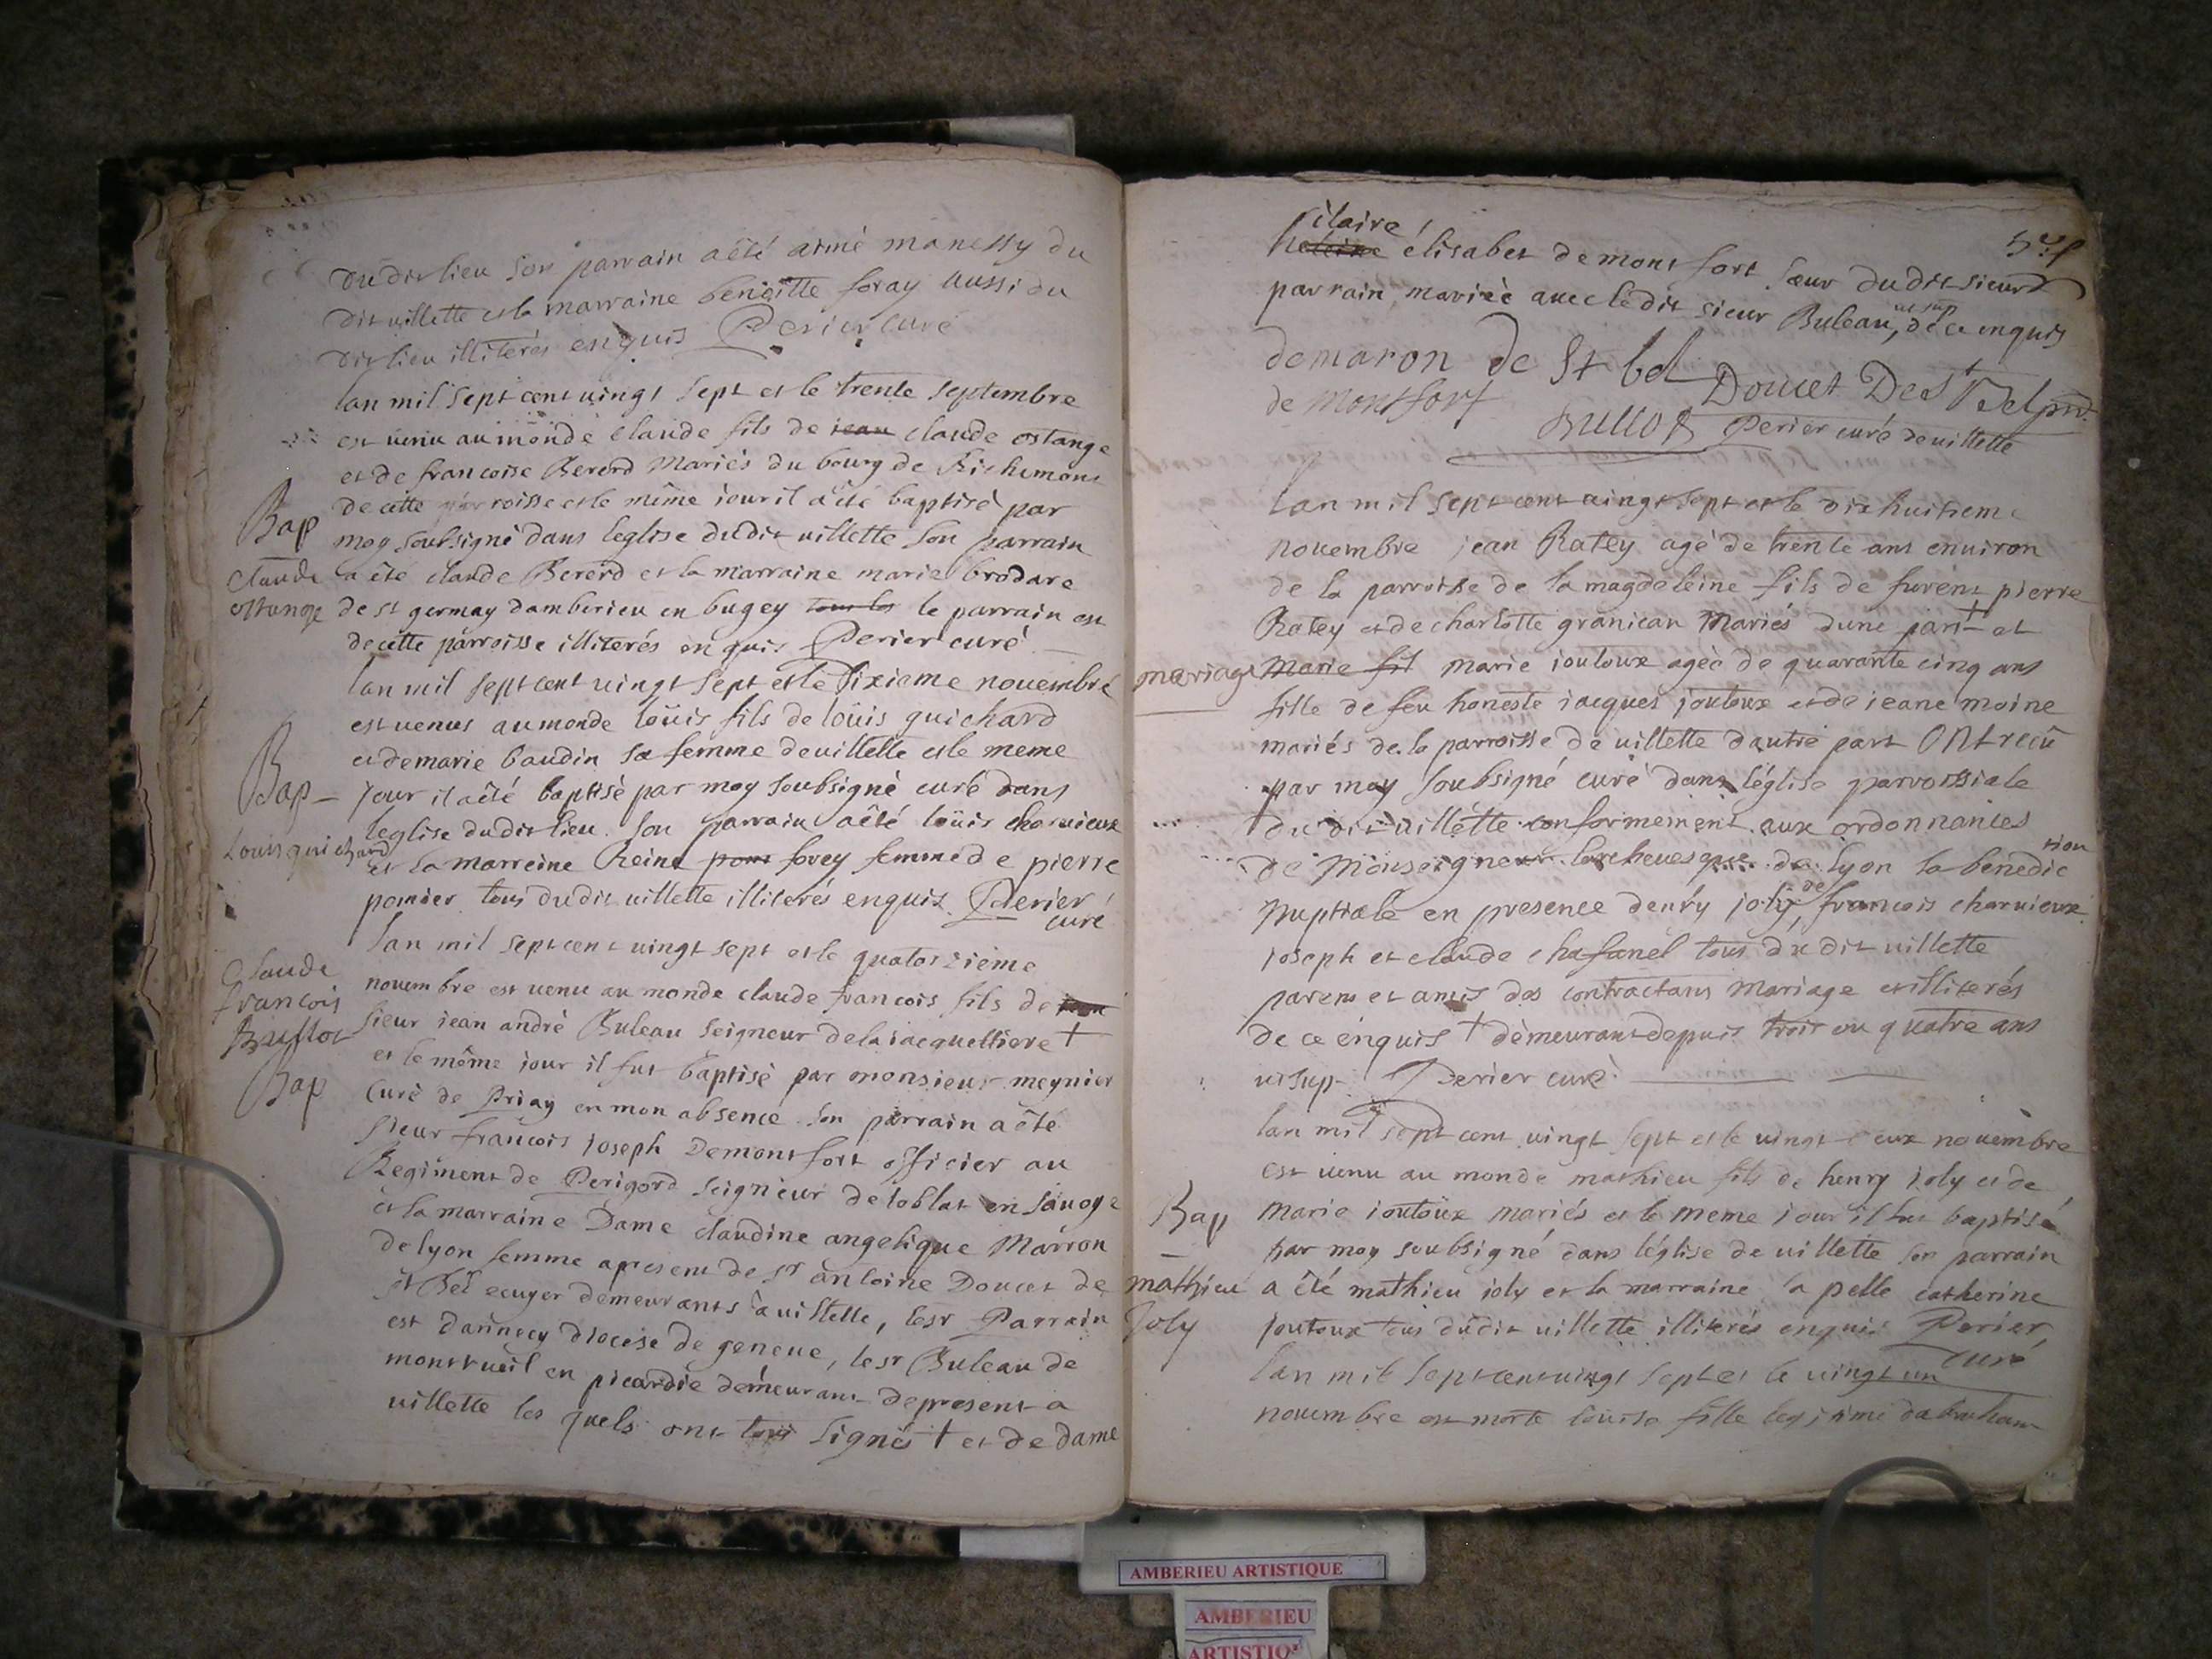 dudit lieu son parrain a êté aimé manessy du
dit villette et la marraine benoitte foray aussi du
dit lieu illiterés enquis Perier curé
lan mil sept cent vingt sept et le trente septembre
est venu au monde claude fils de jean claude ostange
et de francoise Bererd Mariés du bourg de Richemont
de cette parroisse et le même jour il a été baptisé par
Bap
moy soubsigné dans leglise dudit villette son parrain
claude
a été claude Bererd et la marraine marie brodare
ostange
de st germay damberieu en bugey tous les le parrain est
de cette parroisse illiterés enquis Perier curé
lan mil sept cent vingt sept et le sixieme novembre
est venus au monde loüis fils de loüis guichard
et de marie baudin sa femme de villette et le meme
Bap
jour il a êté baptisé par moy soubsigné curé dans
leglise dudit lieu son parrain a êté loüis charvieux
Louis guichard
et la marreine Reine forey femme de pierre
pomier tous dudit villette illiterés enquis Perier
curé
lan mil sept cent vingt sept et le quatorzième
Claude
francois
Bullot
novembre est venu au monde claude francois fils de
sieur jean andré Buleau seigneur de la jacquelliere †
Bap
et le même jour il fut baptisé par monsieur meynier
curé de Priay en mon absence son parrain a êté
sieur françois joseph Demontfort officier au
Regiment de Perigord seigneur de loblat en savoye
et la marraine Dame claudine angelique Marron
de lyon femme apresent de sr antoine Doucet de
st Bel ecuyer demeurants à villette, lesr Parrain
est dannecy diocese de geneve, lesr Buleau de
montrueil en picardie démeurant depresent a
villette les quels ont tous signés † et de dame
hilaire
élisabet de montfort sœur dudit sieur
parrain mariée avec ledit sieur Buleau, de ce enquis
ut sup
demaron de St bel Doucet De St Belpnt
de Montfort
Bullot Perier curé de villette
lan mil sept cent vingt sept et le dix huitieme
novembre jean Ratey agé de trente ans environ
de la parroisse de la magdeleine fils de furent pierre
Ratey et de charlotte granican Mariés dune part † et
mariage
Marie fil marie joutoux agée de quarante cinq ans
fille de feu honeste jacques joutoux et de jeane moine
mariés de la parroisse de villette dautre part ont recû
par moy soubsigné curé dans léglise parroissiale
dudit villette conformement aux ordonnances
de Monseigneur larchevesque de lyon la benediction
nuptiale en presence denry joly, de francois charvieux
joseph et claude chafanel tous du dit villette
parens et amis des contractans mariage et illiterés
de ce enquis † démeurant depuis trois ou quatre ans
ut sup. Perier curé
lan mil sept cent vingt sept et le vingt deux novembre
est venu au monde mathieu fils de henry joly et de
Bap
marie joutoux mariés et le meme jour il fut baptisé
par moy soubsigné dans léglise de villette son parrain
mathieu
a êté mathieu joly et la marraine la pelle catherine
Joly
joutoux tous dudit villette illiterés enquis Perier
curé
lan mil sept cent vingt sept et le vingt un
novembre est morte loüise fille legitime dabraham
AMBERIEU ARTISTIQUE
AMBERIEU